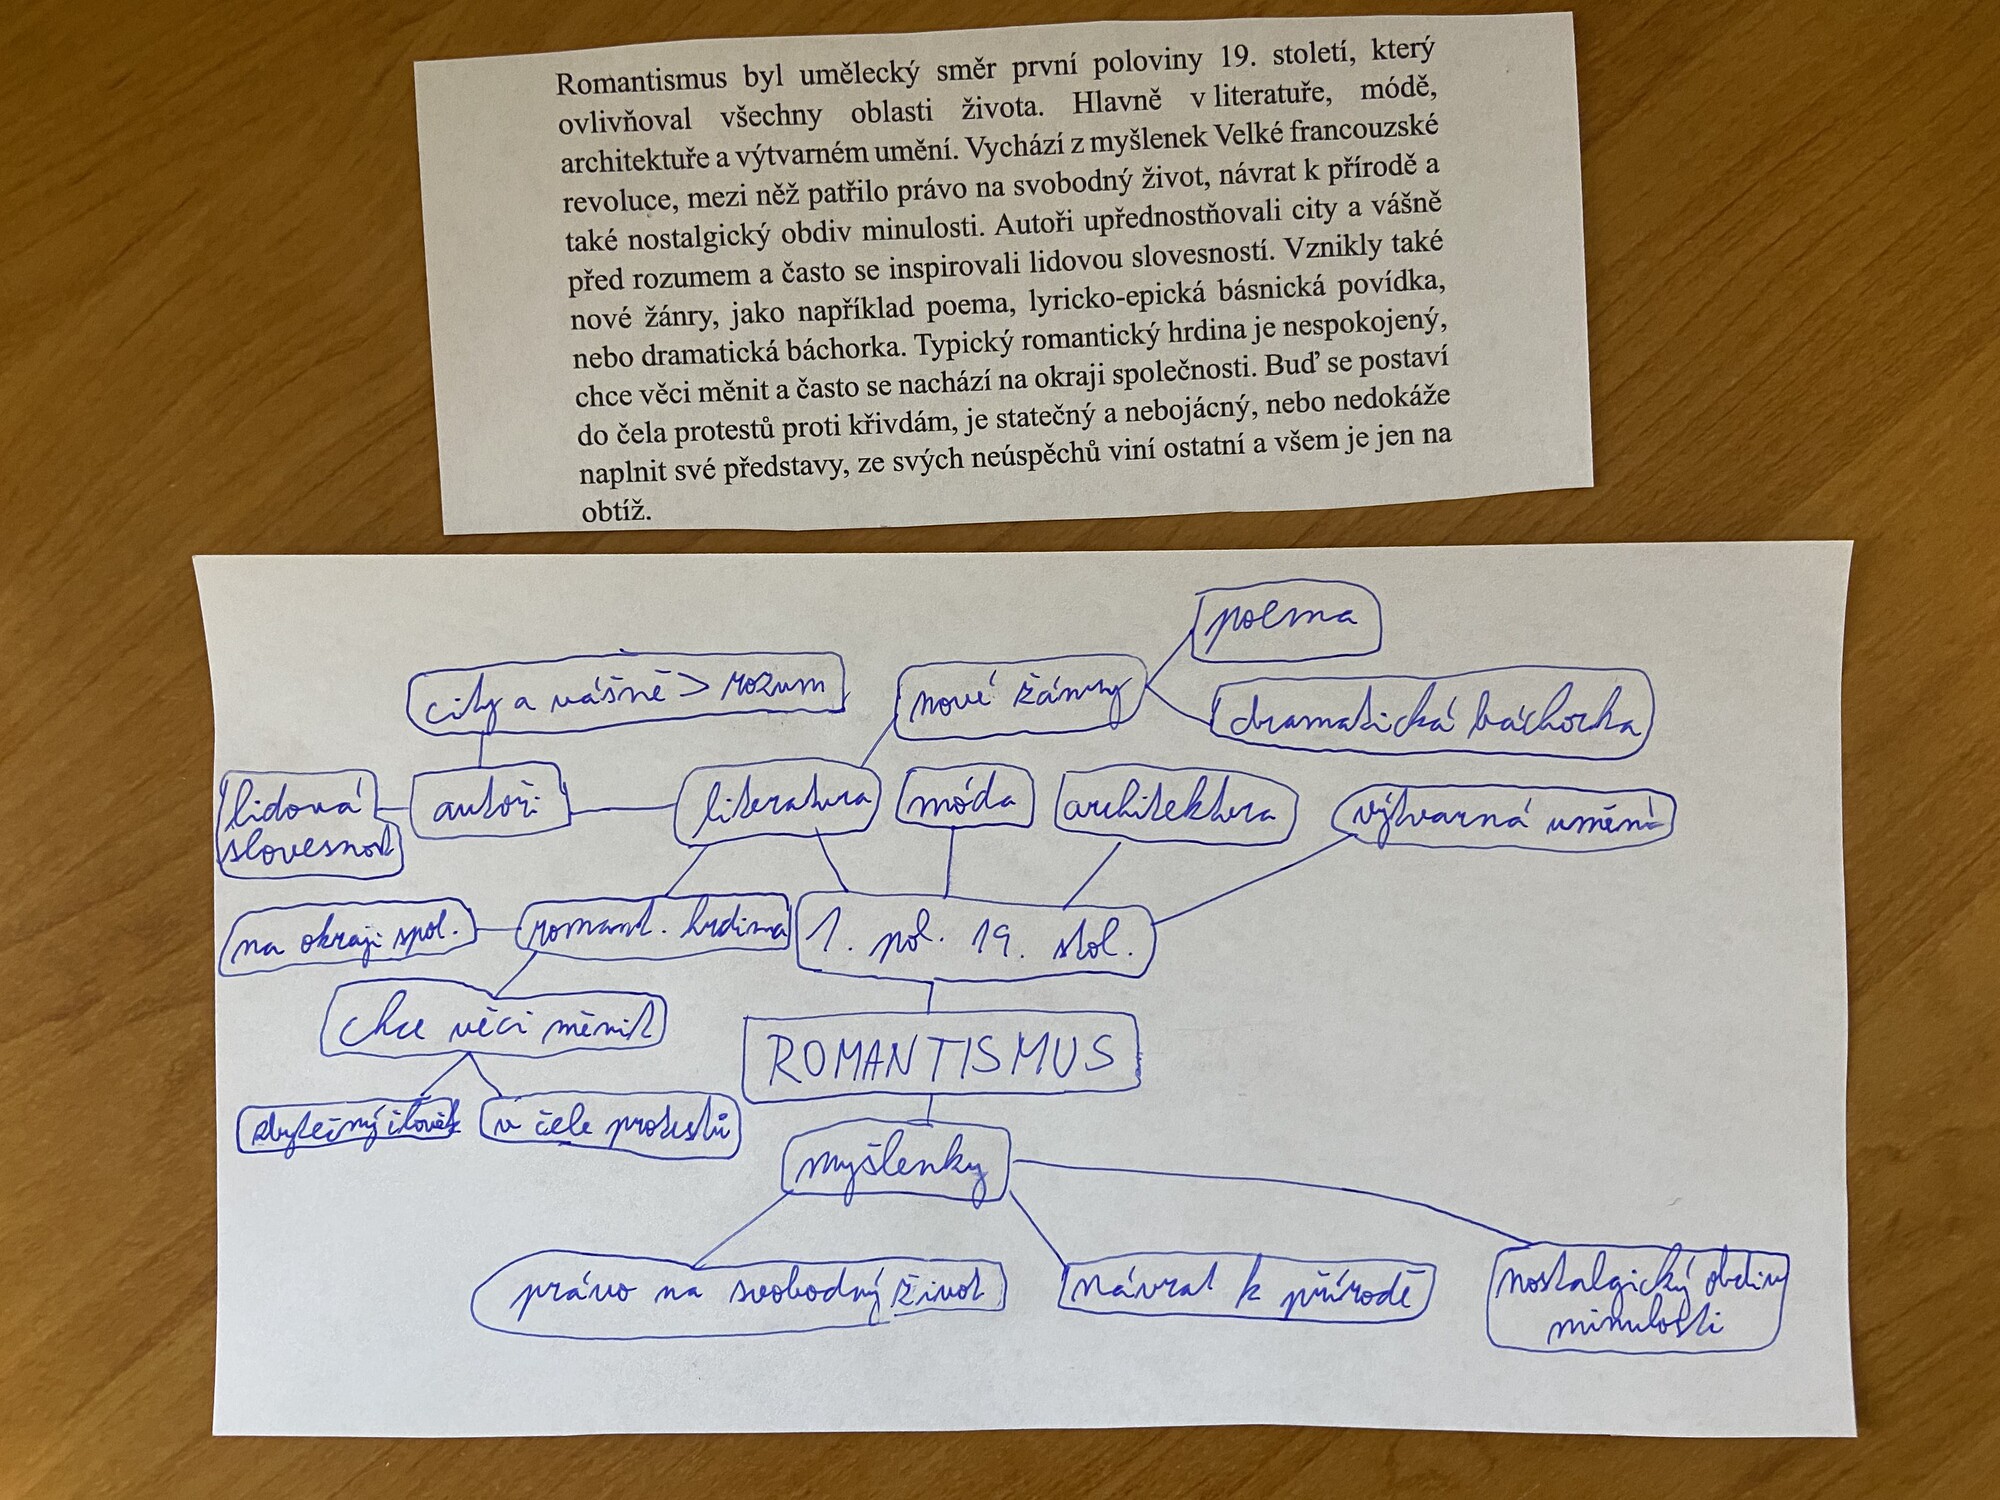 Romantismus byl umělecký směr první poloviny 19. století, který
ovlivňoval všechny oblasti života. Hlavně v literatuře, módě,
architektuře a výtvarném umění. Vychází z myšlenek Velké francouzské
revoluce, mezi něž patřilo právo na svobodný život, návrat k přírodě a
také nostalgický obdiv minulosti. Autoři upřednostňovali city a vášně
před rozumem a často se inspirovali lidovou slovesností. Vznikly také
nové žánry, jako například poema, lyricko-epická básnická povídka,
nebo dramatická báchorka. Typický romantický hrdina je nespokojený,
chce věci měnit a často se nachází na okraji společnosti. Buď se postaví
do čela protestů proti křivdám, je statečný a nebojácný, nebo nedokáže
naplnit své představy, ze svých neúspěchů viní ostatní a všem je jen na
obtíž.
poema
city a vášně > rozum
nové žánry
dramatická báchorka
lidová
slovesnost
autoři
literatura
móda
architektura
výtvarná umění
na okraji spol.
romant. hrdina
1. pol. 19. stol.
chce věci měnit
ROMANTISMUS
zbytečný člověk
v čele protestů
myšlenky
právo na svobodný život
návrat k přírodě
nostalgický obdiv
minulosti